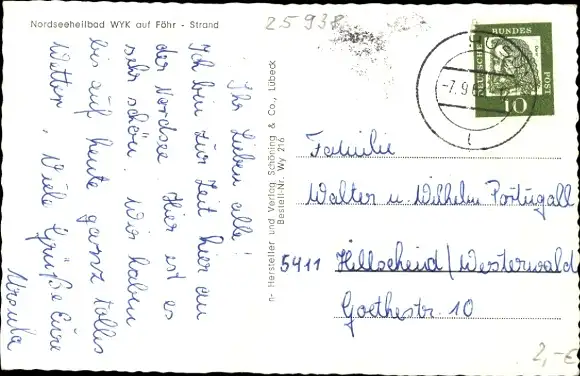 Nordseeheilbad WYK auf Föhr - Strand
25938
Ihr Lieben alle!
Ich bin zur Zeit hier an
der Nordsee. Hier ist es
sehr schön. Wir haben
bis auf heute ganz tolles
Wetter. Viele Grüße Eure
Ursula
Hersteller und Verlag Schöning & Co., Lübeck
Bestell-Nr. Wy 216
DEUTSCHE BUNDESPOST
10
-7.9.6
Familie
Walter u. Wilhelm Portugall
5411 Hillscheid/Westerwald
Goethestr. 10
2,-€